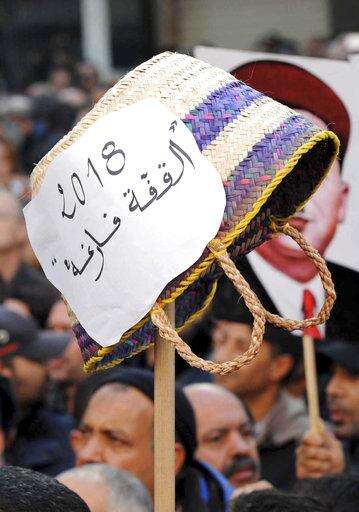 2018
ألقفة فارغة